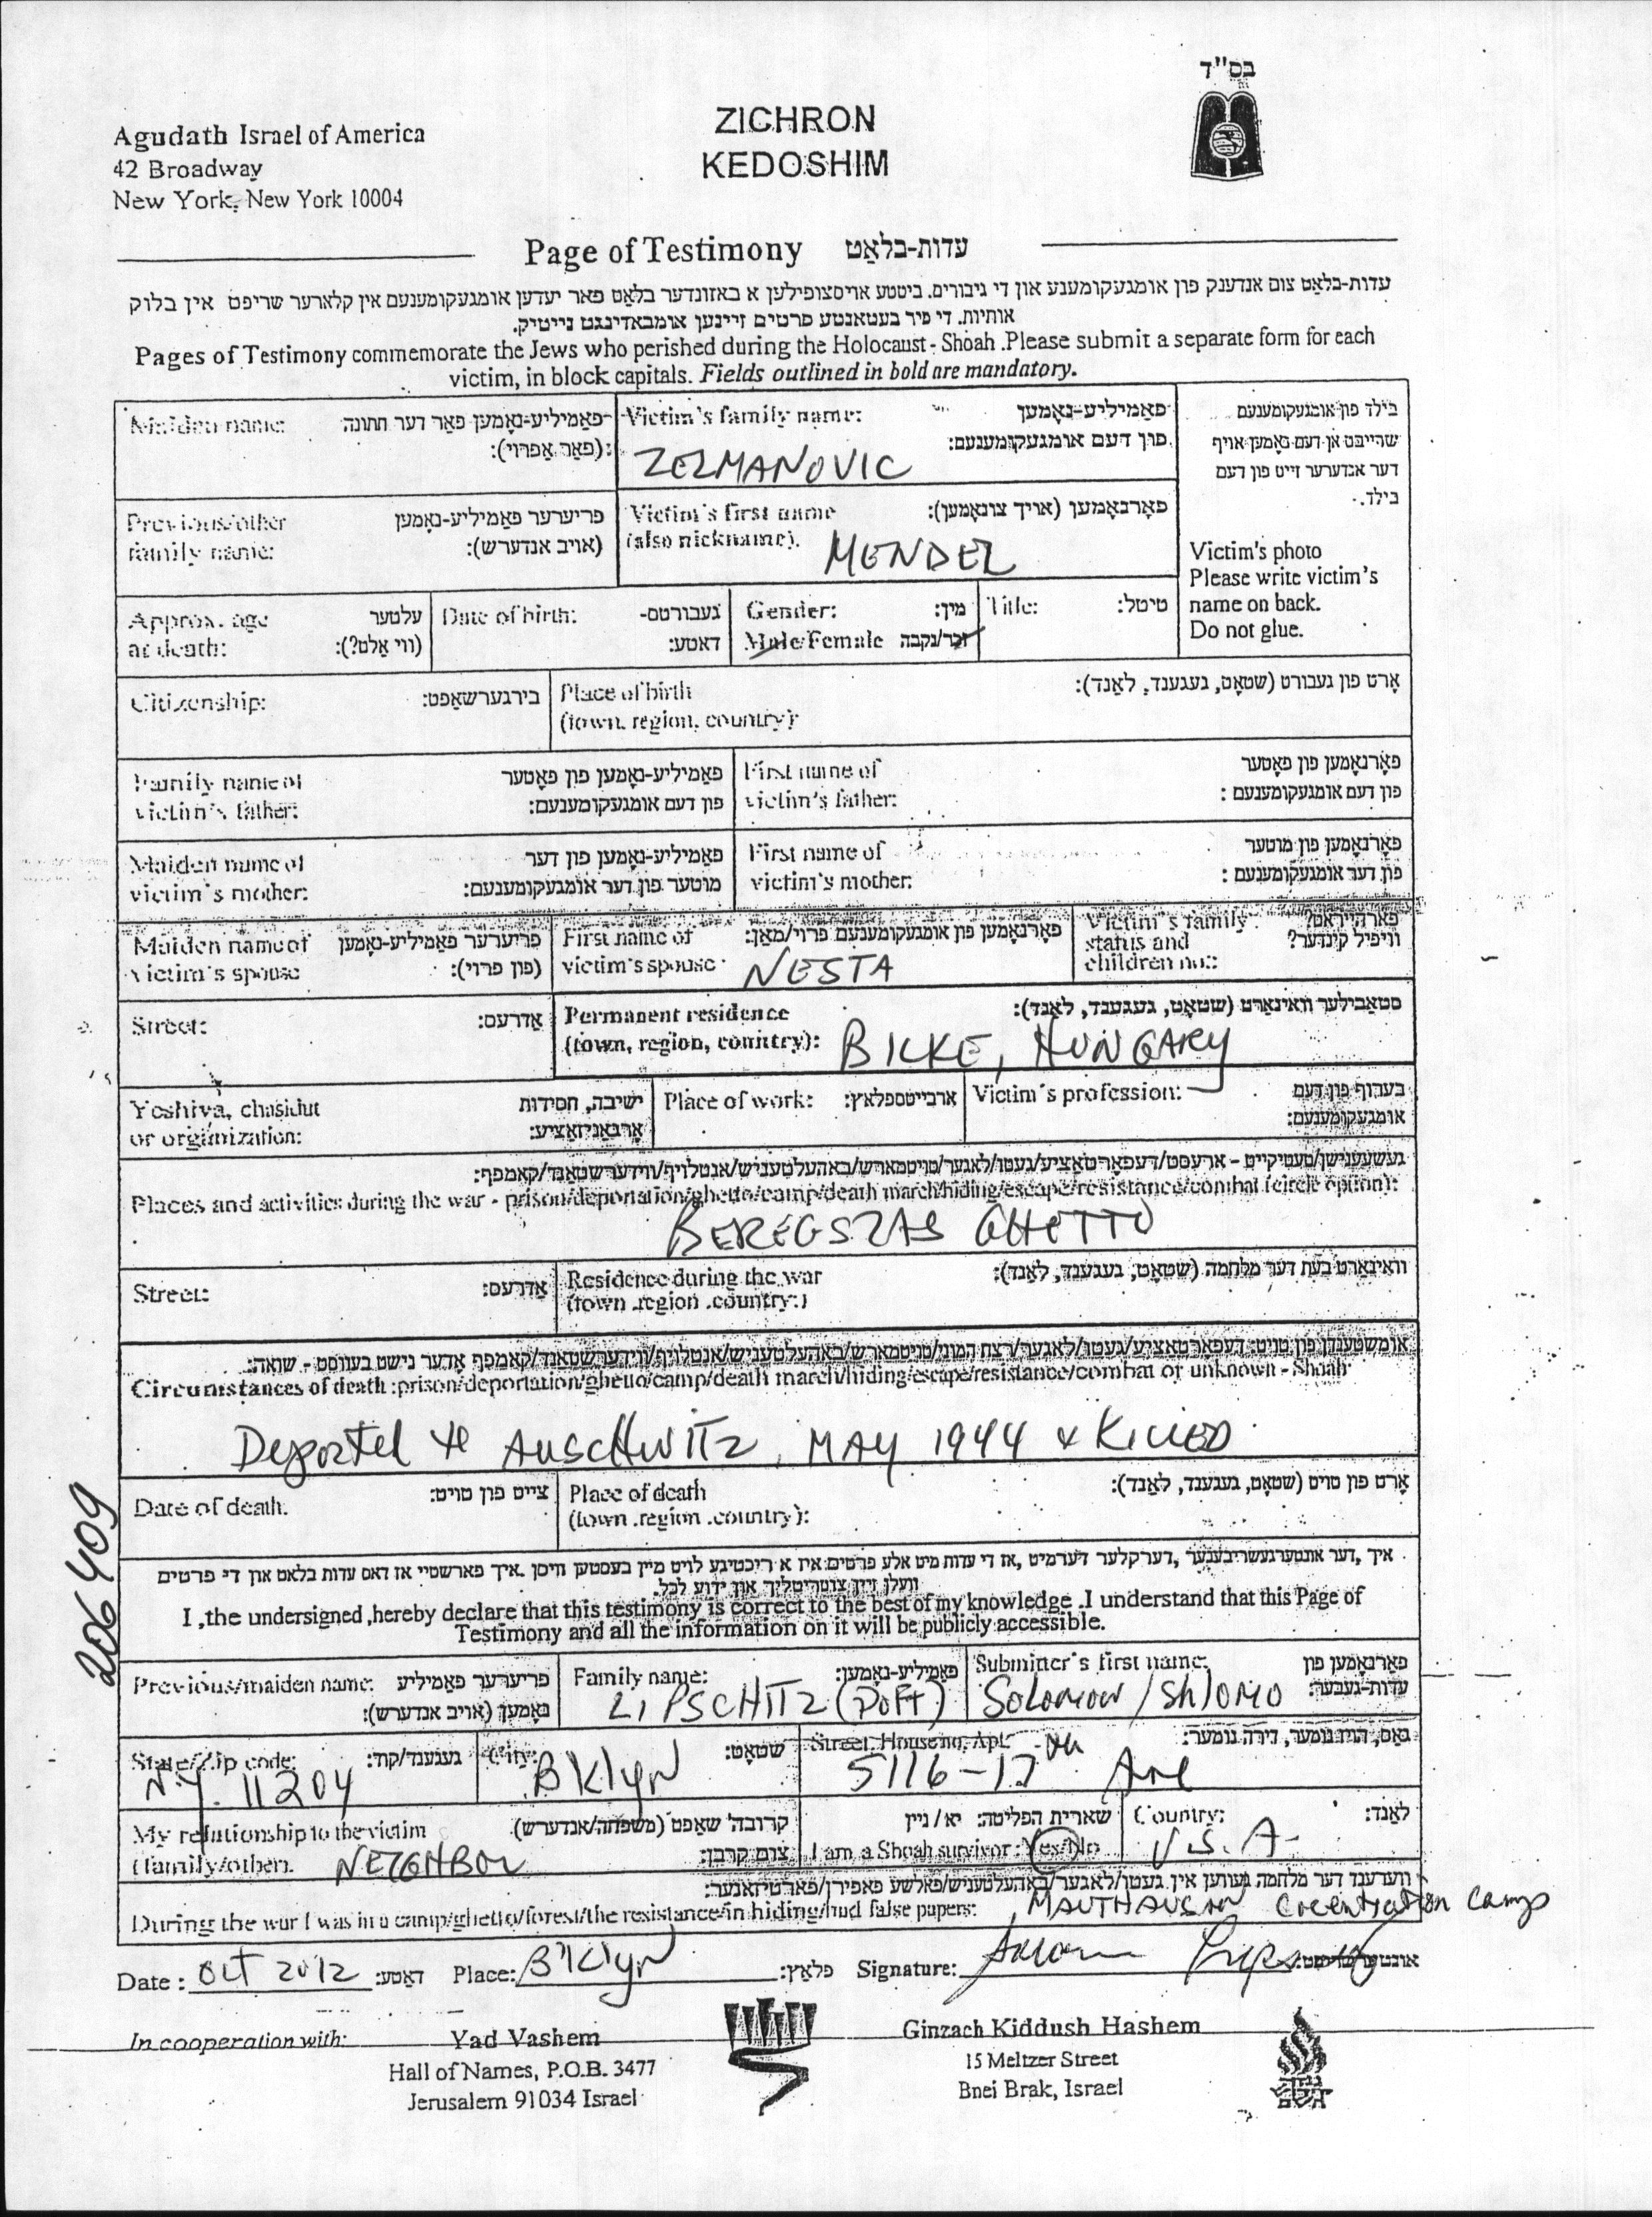 בס"ד
Agudath Israel of America
42 Broadway
New York, New York 10004
ZICHRON
KEDOSHIM
Page of Testimony עדות-בלאַט
עדות-בלאַט צום אנדענק פון אומגעקומענע און די גיבורים. ביטע אויסצופילען א באזונדער בלאַט פאר יעדען אומגעקומענעם אין קלארער שריפט אין בלוק
אותיות. די פיר בעטאנטע פרטים זיינען אומבאדינגט נייטיק.
Pages of Testimony commemorate the Jews who perished during the Holocaust - Shoah .Please submit a separate form for each
victim, in block capitals. Fields outlined in bold are mandatory.
Maiden name: פאַמיליע-נאָמען פאַר דער חתונה
(פאַר אַפרוי):
Victim's family name: פאַמיליע-נאָמען
פון דעם אומגעקומענעם:
ZELMANOVIC
בילד פון אומגעקומענעם
שרייבט אן דעם נאָמען אויף
דער אנדערער זייט פון דעם
בילד.
Victim's photo
Please write victim's
name on back.
Do not glue.
Previous/other פריערער פאַמיליע-נאָמען
family name: (אויב אנדערש):
Victim's first name פאָרנאָמען (אויך צונאָמען):
(also nickname). MENDEL
Approx. age עלטער
at death: (ווי אַלט?):
Date of birth: געבורטס-
דאַטע:
Gender: מין:
Male/Female זכר/נקבה
Title: טיטל:
Citizenship: בירגערשאַפט:
Place of birth אָרט פון געבורט (שטאָט, געגענד, לאַנד):
(town, region, country):
Family name of פאַמיליע-נאָמען פון פאָטער
victim's father: פון דעם אומגעקומענעם:
First name of פאָרנאָמען פון פאָטער
victim's father: פון דעם אומגעקומענעם :
Maiden name of פאַמיליע-נאָמען פון דער
victim's mother: מוטער פון דער אומגעקומענעם:
First name of פאָרנאָמען פון מוטער
victim's mother: פון דער אומגעקומענעם :
Maiden name of פריערער פאַמיליע-נאָמען
victim's spouse (פון פרוי):
First name of פאָרנאָמען פון אומגעקומענעם פרוי/מאַן:
victim's spouse NESTA
Victim's family פארהייראט?
status and וויפיל קינדער?
children no.:
Street: אַדרעס:
Permanent residence סטאַבילער וואוינאָרט (שטאָט, געגענד, לאַנד):
(town, region, country): BILKE, HUNGARY
Yeshiva, chasidut ישיבה, חסידות
or organization: אָרגאַניזאַציע:
Place of work: ארבייטספלאַץ:
Victim's profession: בערוף פון דעם
אומגעקומענעם:
געשעענישן/טעטיקייט - ארעסט/דעפאָרטאַציע/געטו/לאַגער/טויטמארש/באַהעלטעניש/אנטלויף/ווידערשטאַנד/קאַמפף:
Places and activities during the war - prison/deportation/ghetto/camp/death march/hiding/escape/resistance/combat (circle option):
BEREGSZAS GHETTO
Street: אַדרעס:
Residence during the war וואוינאָרט בעת דער מלחמה (שטאָט, געגענד, לאַנד):
(town .region .country:)
אומשטענדן פון טויט: דעפּאָרטאַציע/געטו/לאַגער/רצח המוני/טויטמארש/באַהעלטעניש/אנטלויף/ווידערשטאַנד/קאַמפף אָדער נישט בעוואוסט - שואה:
Circumstances of death :prison/deportation/ghetto/camp/death march/hiding/escape/resistance/combat or unknown - Shoah
Deported to AUSCHWITZ, MAY 1944 & KILLED
Date of death. צייט פון טויט:
Place of death אָרט פון טויט (שטאָט, געגענד, לאַנד):
(town .region .country):
206409
איך ,דער אונטערגעשריבענער ,דערקלער דערמיט ,אז די עדות מיט אלע פרטים איז א ריכטיגע לויט מיין בעסטען וויסן .איך פארשטיי אז דאס עדות בלאט און די פרטים
וועלן זיין צוטריטליך און ידוע לכל.
I ,the undersigned ,hereby declare that this testimony is correct to the best of my knowledge .I understand that this Page of
Testimony and all the information on it will be publicly accessible.
Previous/maiden name: פריערער פאַמיליע
נאָמען (אויב אנדערש):
Family name: פאַמיליע-נאָמען:
LIPSCHITZ (POFT)
Submitter's first name: פאָרנאָמען פון
עדות-געבער:
Solomon / Shlomo
State/Zip code: געגענד/קוד:
N.Y. 11204
City: שטאָט:
BKlyn
Street, House no, Apt. גאַס, הויז נומער, דירה נומער:
5116-17 Ave
My relationship to the victim קרובה' שאַפט (משפחה/אנדערש)
(family/other). צום קרבן:
NEIGHBOR
שארית הפליטה: יא / ניין
I am a Shoah survivor : Yes/No
Country: לאַנד:
U.S.A.
ווערענד דער מלחמה געווען אין געטו/לאַגער/באַהעלטעניש/פאַלשע פּאַפּירן/פארטיזאנער:
During the war I was in a camp/ghetto/forest/the resistance/in hiding/had false papers: MAUTHAUSEN Concentration camp
Date : Oct 2012 דאַטע: Place: BKlyn פלאַץ: Signature:
In cooperation with: Yad Vashem
Hall of Names, P.O.B. 3477
Jerusalem 91034 Israel
Ginzach Kiddush Hashem
15 Meltzer Street
Bnei Brak, Israel